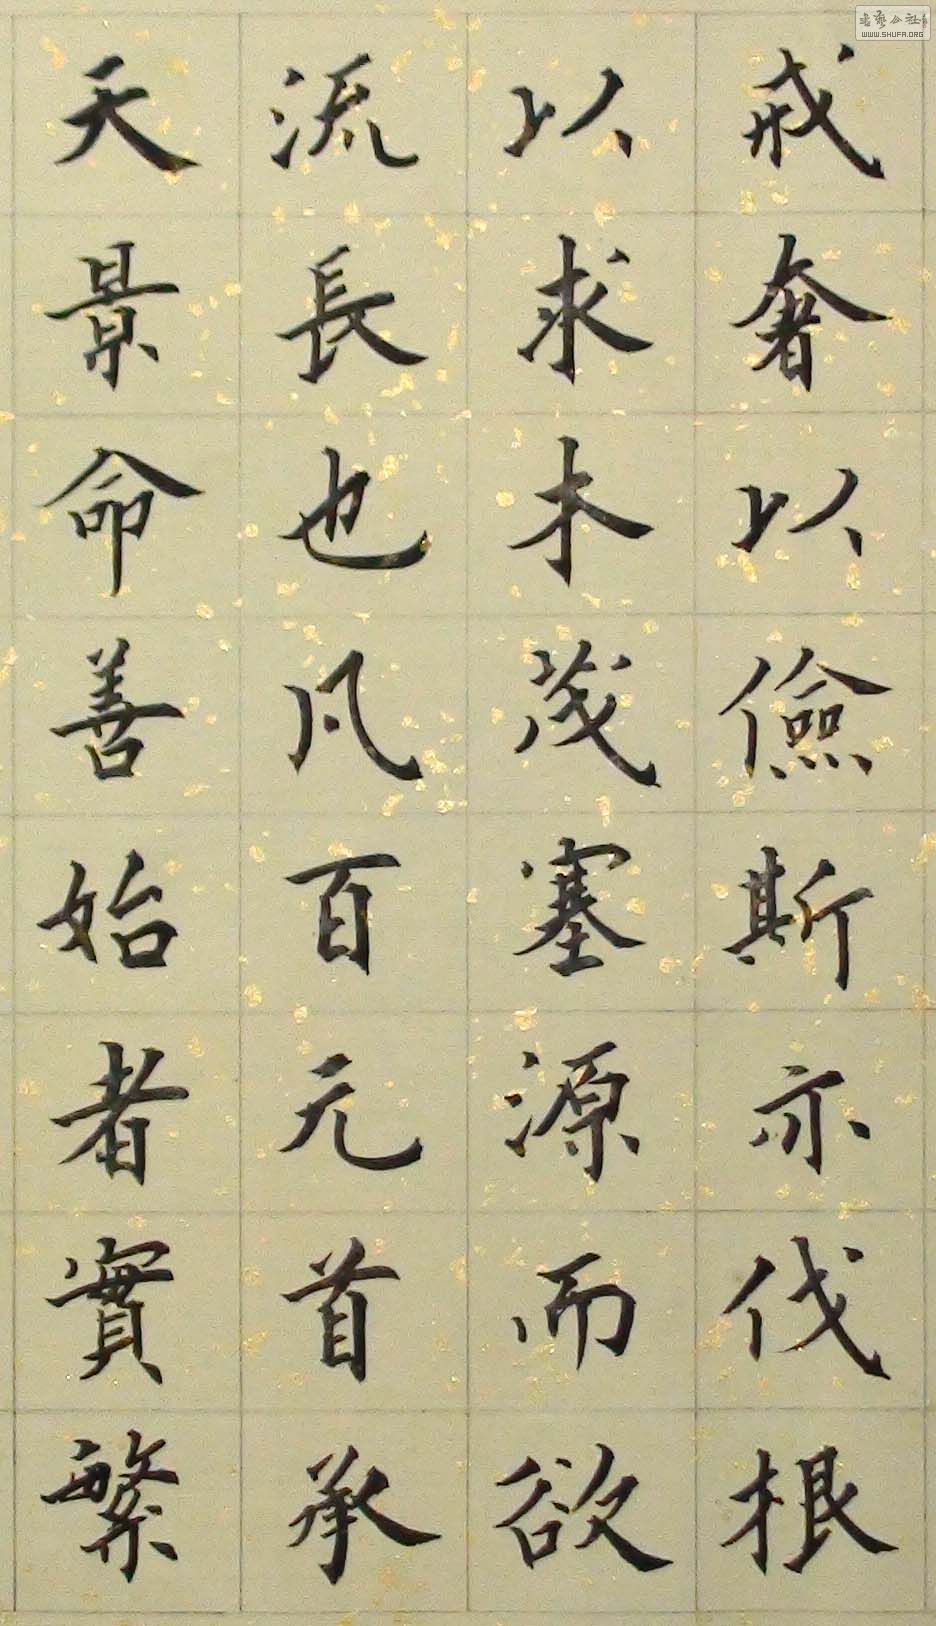 戒奢以儉斯亦伐根
以求木茂塞源而欲
流長也凡百元首承
天景命善始者實繁
書藝公社
WWW.SHUFA.ORG